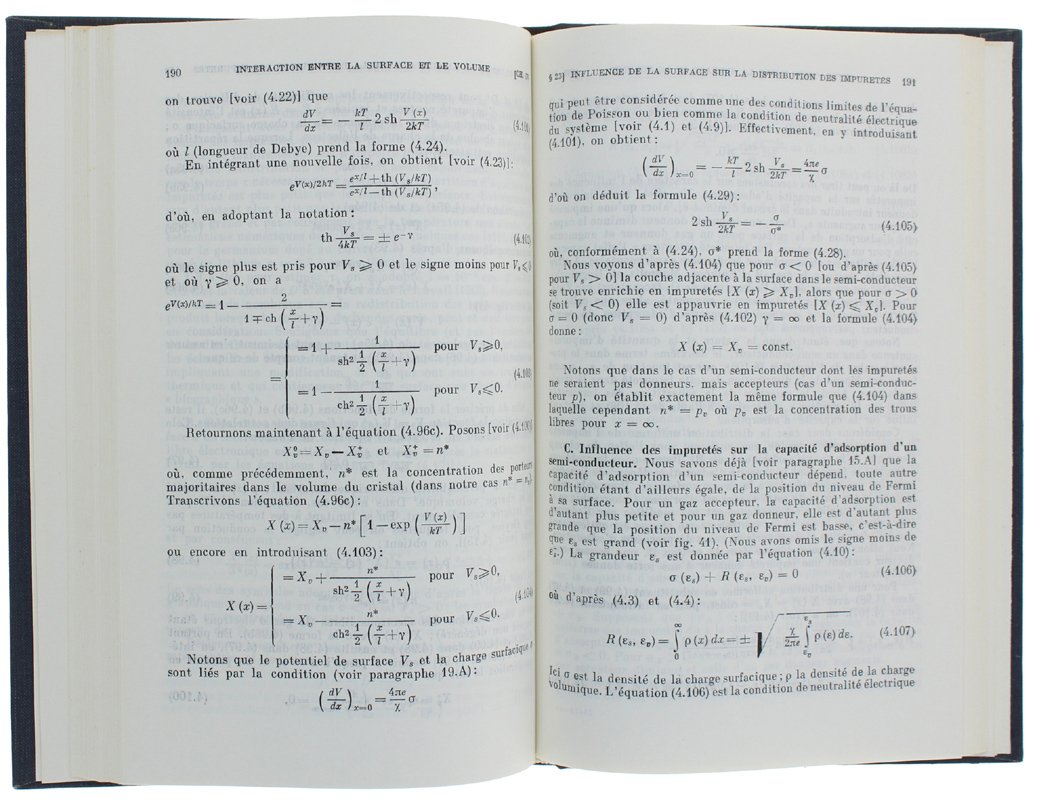 190 INTERACTION ENTRE LA SURFACE ET LE VOLUME [CH.
on trouve [voir (4.22)] que
dV/dx = − kT/l 2 sh V (x)/2kT
où l (longueur de Debye) prend la forme (4.24).
En intégrant une nouvelle fois, on obtient [voir (4.23)]:
e^{V(x)/2kT} = (e^{x/l} + th (V_s/kT))/(e^{x/l} − th (V_s/kT)) ,
d'où, en adoptant la notation:
th V_s/4kT = ± e^{−γ} (4.102)
où le signe plus est pris pour V_s ⩾ 0 et le signe moins pour V_s ⩽
et où γ ⩾ 0, on a
e^{V(x)/kT} = 1 − 2/(1 ∓ ch (x/l + γ)) =
= { = 1 + 1/(sh² 1/2 (x/l + γ)) pour V_s ⩾ 0,
= 1 − 1/(ch² 1/2 (x/l + γ)) pour V_s ⩽ 0. (4.103)
Retournons maintenant à l'équation (4.96c). Posons [voir (4.100)]
X_v^0 = X_v − X_v^+ et X_v^+ = n*
où, comme précédemment, n* est la concentration des porteurs
majoritaires dans le volume du cristal (dans notre cas n* = n_v).
Transcrivons l'équation (4.96c):
X (x) = X_v − n* [1 − exp (V (x)/kT)]
ou encore en introduisant (4.103):
X (x) = { = X_v + n*/(sh² 1/2 (x/l + γ)) pour V_s ⩾ 0,
= X_v − n*/(ch² 1/2 (x/l + γ)) pour V_s ⩽ 0. (4.104)
Notons que le potentiel de surface V_s et la charge surfacique σ
sont liés par la condition (voir paragraphe 19.A):
(dV/dx)_{x=0} = 4πe/χ σ
§ 23] INFLUENCE DE LA SURFACE SUR LA DISTRIBUTION DES IMPURETÉS 191
qui peut être considérée comme une des conditions limites de l'équa-
tion de Poisson ou bien comme la condition de neutralité électrique
du système [voir (4.1) et (4.9)]. Effectivement, en y introduisant
(4.101), on obtient:
(dV/dx)_{x=0} = − kT/l 2 sh V_s/2kT = 4πe/χ σ
d'où on déduit la formule (4.29):
2 sh V_s/2kT = − σ/σ* (4.105)
où, conformément à (4.24), σ* prend la forme (4.28).
Nous voyons d'après (4.104) que pour σ < 0 [ou d'après (4.105)
pour V_s > 0] la couche adjacente à la surface dans le semi-conducteur
se trouve enrichie en impuretés [X (x) ⩾ X_v], alors que pour σ > 0
(soit V_s < 0) elle est appauvrie en impuretés [X (x) ⩽ X_v]. Pour
σ = 0 (donc V_s = 0) d'après (4.102) γ = ∞ et la formule (4.104)
donne:
X (x) = X_v = const.
Notons que dans le cas d'un semi-conducteur dont les impuretés
ne seraient pas donneurs, mais accepteurs (cas d'un semi-conduc-
teur p), on établit exactement la même formule que (4.104) dans
laquelle cependant n* = p_v où p_v est la concentration des trous
libres pour x = ∞.
C. Influence des impuretés sur la capacité d'adsorption d'un
semi-conducteur. Nous savons déjà [voir paragraphe 15.A] que la
capacité d'adsorption d'un semi-conducteur dépend, toute autre
condition étant d'ailleurs égale, de la position du niveau de Fermi
à sa surface. Pour un gaz accepteur, la capacité d'adsorption est
d'autant plus petite et pour un gaz donneur, elle est d'autant plus
grande que la position du niveau de Fermi est basse, c'est-à-dire
que ε_s est grand (voir fig. 41). (Nous avons omis le signe moins de
ε_s^-.) La grandeur ε_s est donnée par l'équation (4.10):
σ (ε_s) + R (ε_s, ε_v) = 0 (4.106)
où d'après (4.3) et (4.4):
R (ε_s, ε_v) = ∫_0^∞ ρ (x) dx = ± √(χ/2πe ∫_{ε_v}^{ε_s} ρ (ε) dε. (4.107)
Ici σ est la densité de la charge surfacique; ρ la densité de la charge
volumique. L'équation (4.106) est la condition de neutralité électrique